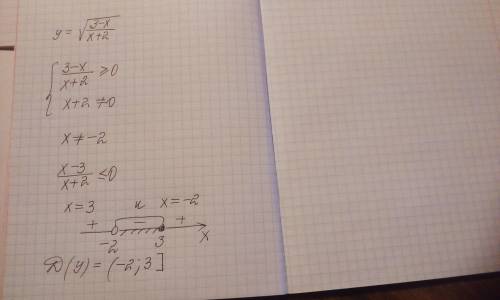 y = √((3-x)/(x+2))
{ (3-x)/(x+2) ≥ 0
x+2 ≠ 0
x ≠ -2
(x-3)/(x+2) ≤ 0
x = 3 и x = -2
+ − +
-2 3 x
D(y) = (-2; 3]